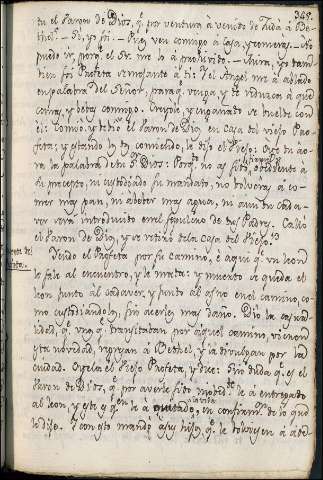 348.
tu el Varon de Dios, q̃ por ventura à venido de Judà à Be
thel? = Si, yo soi = Pues ven conmigo à Casa, y comeràs. = No
puedo ir, porq̃ el Sr. me lo à prohivido. = Mira, yo tam
bien soi Profeta semejante à ti: y el Angel me à ablado
en palabra del Señor, para q̃ venga, y te reduzca à què
comas, y bebas conmigo. y engañado se buelve con
el: Comiò, y bebiò el Varon de Dios en Casa del viejo Pro-
feta; y estando comiendo, le dijo el viejo: Oye tu ao-
ra la palabra de Dios: Porq̃ no as sido obediente à
su precepto, ni custodiado su mandato, no bolveràs à co-
mer mas pan, ni à beber mas agua, ni aun tu cada-
ver serà introducido en el sepulcro de tus Padres. Callò
el Varon de Dios, y se retirò de la Casa del viejo.
Yendo el Profeta por su camino, è aqui q̃ un leon
le sale al encuentro, y le mata: y muerto se queda el
leon junto al cadaver, y junto al asno en el camino, co-
mo custodiandolos, sin acerles mas daño. Diò la casua-
lidad, q̃ unos q̃ transitaban por aquel camino, vieron
esta novedad, llegan à Bethel, y la divulgan por la
ciudad. Oyela el viejo Profeta, y dice: Sin duda q̃ es el
Varon de Dios, q̃ por averle sido inobed.te le à entregado
al leon, y este es q.n le à quitado la vida, en confirm.n de lo que
le dijo. Con esto mandò à sus hijos q̃ le